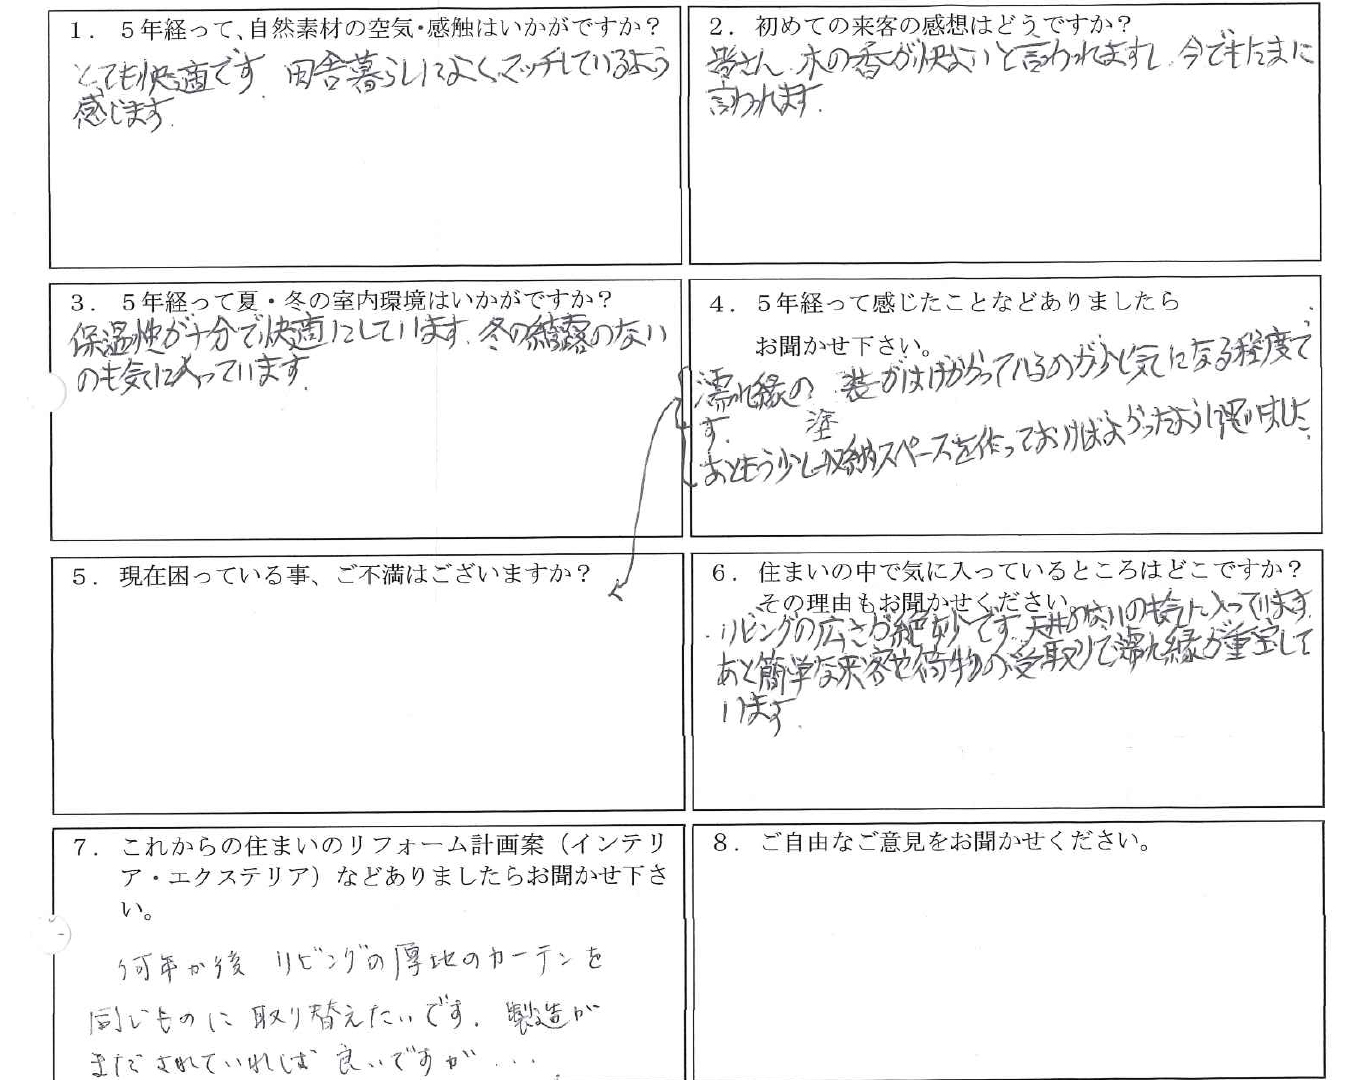 １．５年経って、自然素材の空気・感触はいかがですか？
とても快適です。田舎暮らしによくマッチしているよう
感じます。
２．初めての来客の感想はどうですか？
皆さん、木の香が快よいと言われますし、今でもたまに
言われます。
３．５年経って夏・冬の室内環境はいかがですか？
保温性が十分で快適にしています。冬の結露のない
のも気に入っています。
４．５年経って感じたことなどありましたら
お聞かせ下さい。
濡れ縁の 装がはげかかっているのが少し気になる程度で
塗
す。
あともう少し収納スペースを作っておけばよかったように思いました。
５．現在困っている事、ご不満はございますか？
６．住まいの中で気に入っているところはどこですか？
その理由もお聞かせください。
リビングの広さが絶妙です。天井のないのも気に入っています。
あと簡単な来客や荷物の受取りで濡れ縁が重宝して
います。
７．これからの住まいのリフォーム計画案（インテリ
ア・エクステリア）などありましたらお聞かせ下さ
い。
何年か後 リビングの厚地のカーテンを
同じものに取り替えたいです。製造が
まだされていれば良いですが...
８．ご自由なご意見をお聞かせください。